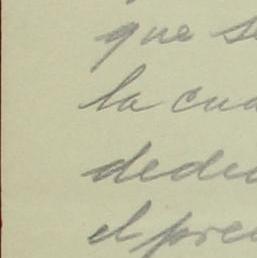 que se
la cua
dedic
el prec